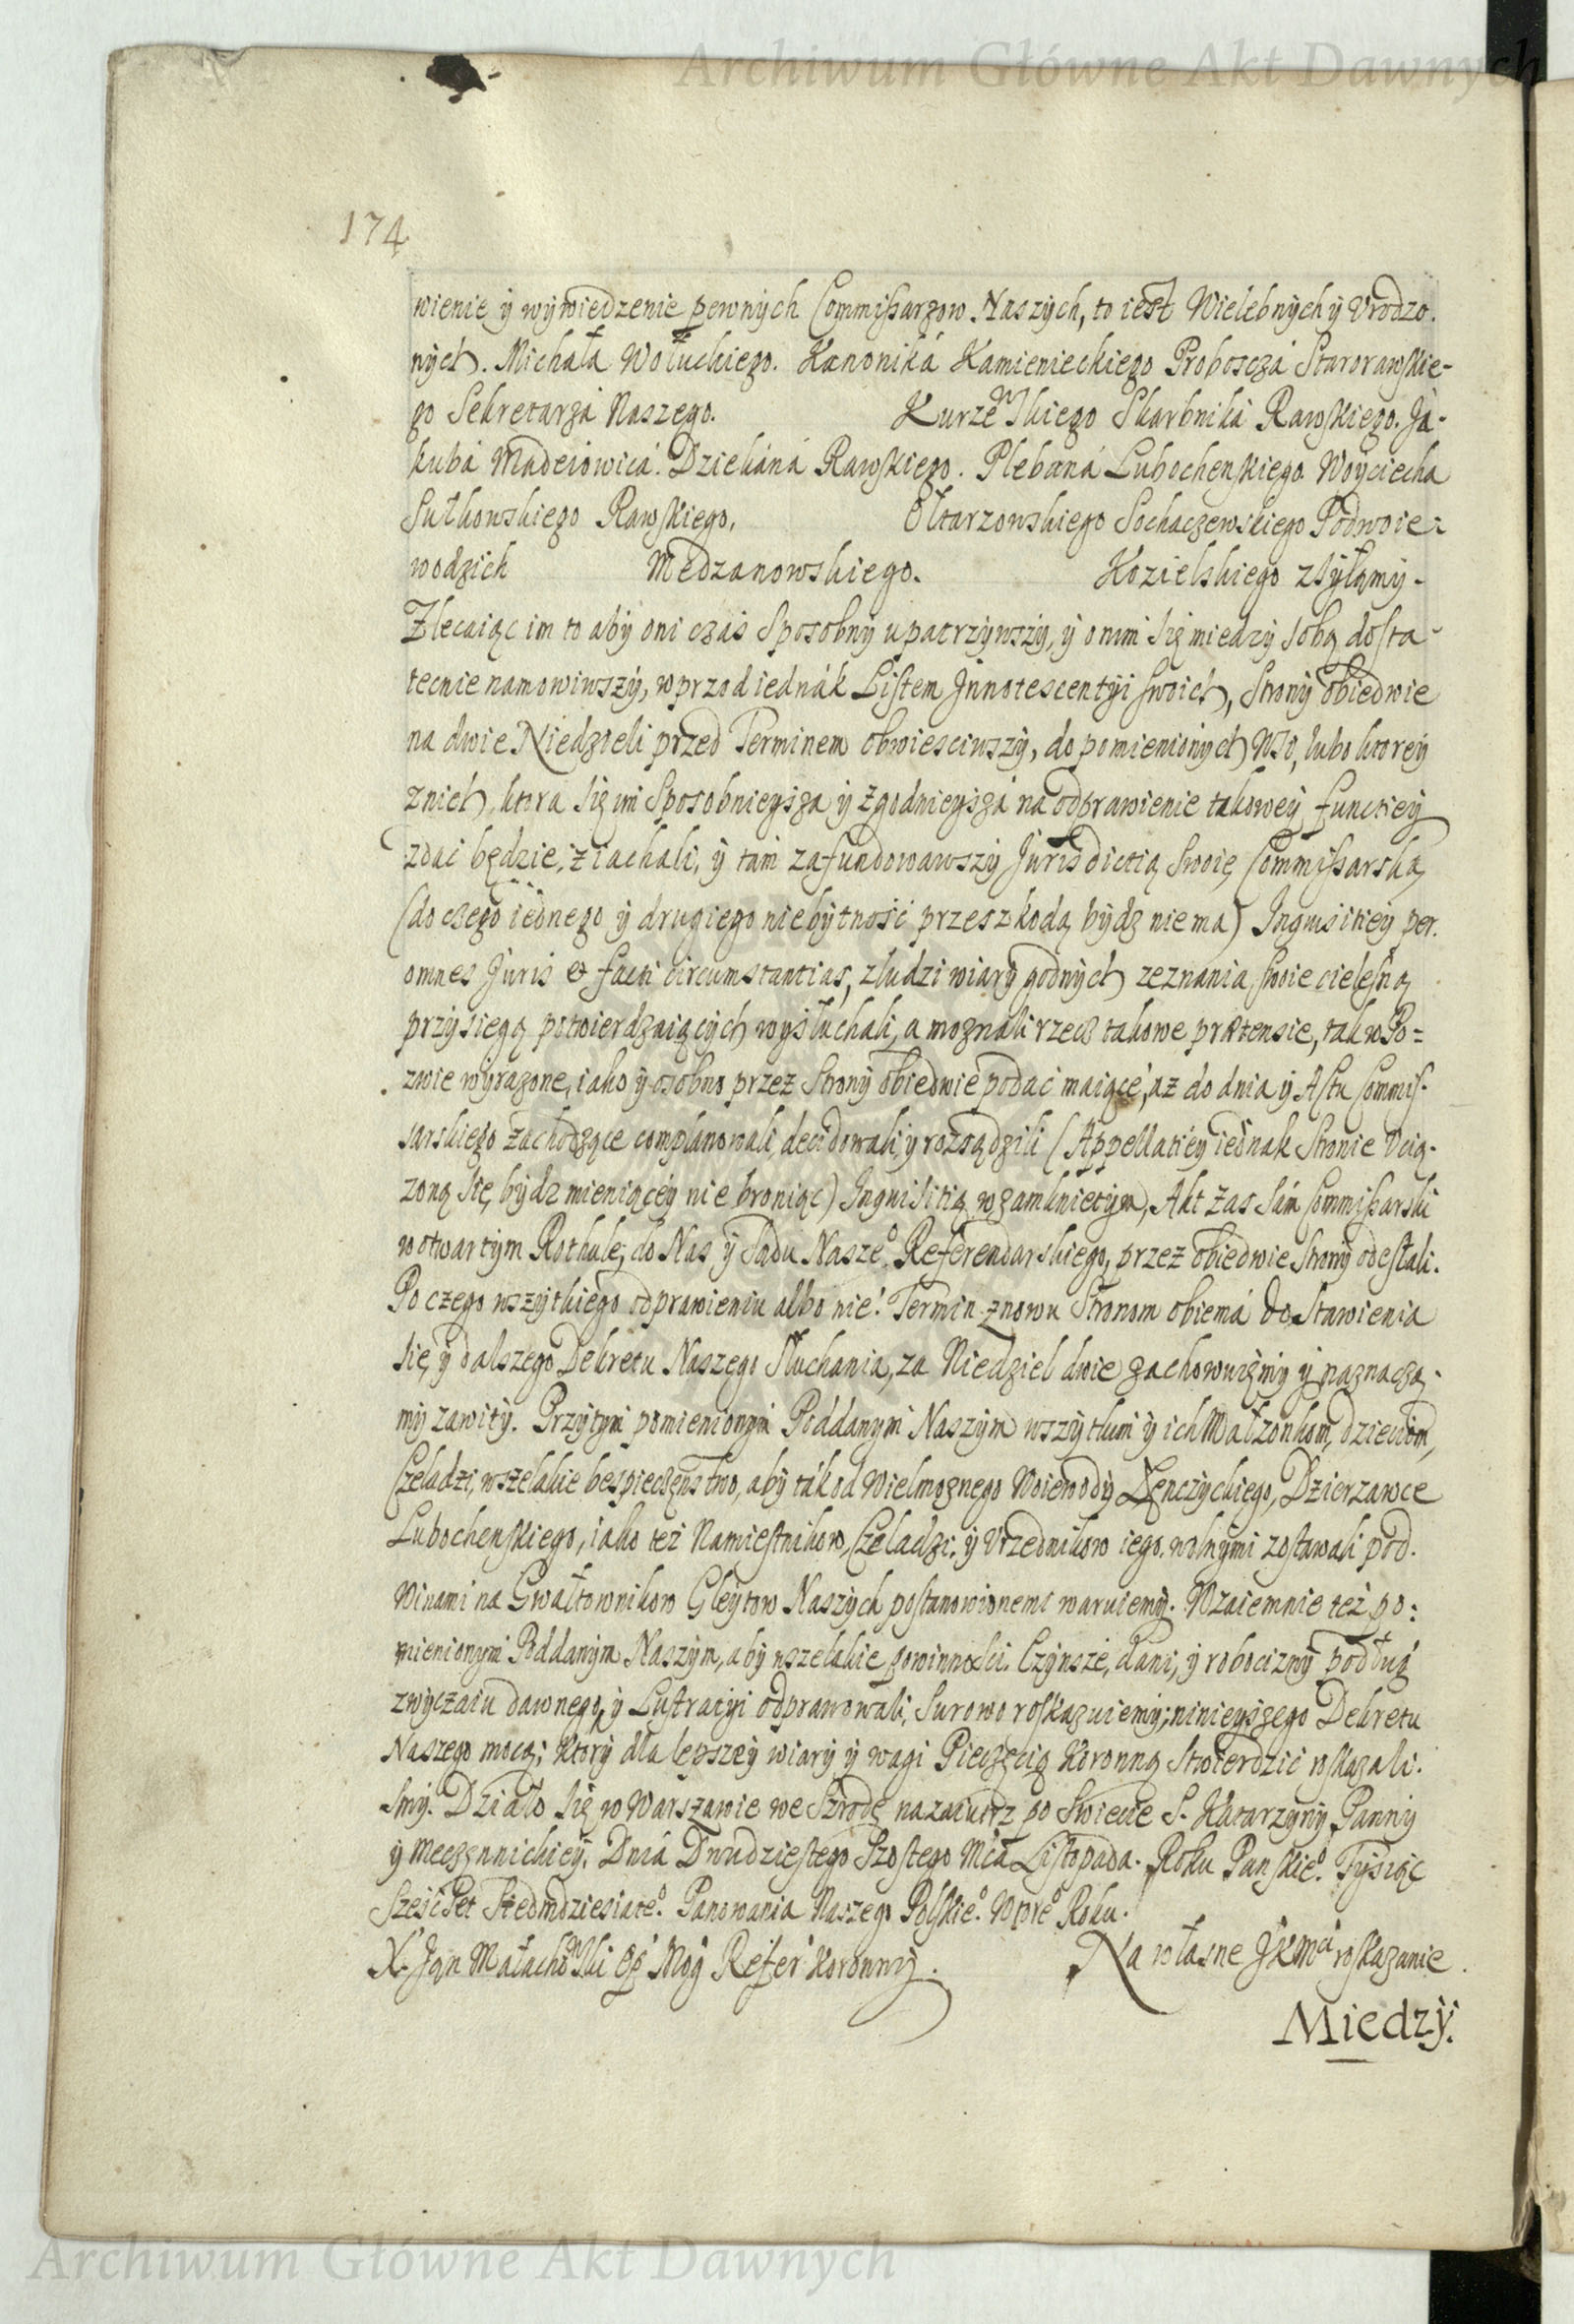 Archiwum Główne Akt Dawnych
174
wienie ÿ wÿwiedzenie pewnÿch Commissarzow Naszÿch, to iest Wielebnÿch ÿ Vrodzo.
nÿch. Michała Wołuckiego. Kanoniká Kamienieckiego Proboszczá Starorawskie-
go Sekretarzá Naszego. Kurzeńskiego Skarbniká Rawskiego. Já-
kubá Madeiowicá. Dziekáná Rawskiego. Plebaná Lubochenskiego. Woÿciecha
Sułkowskiego Rawskiego, Ołtarzowskiego Sochaczewskiego Podwoie-
wodzich Medzanowskiego. Kozielskiego zsÿłamÿ.
Zlecaiąc im to abÿ oni czás sposobnÿ upatrzÿwszÿ, ÿ onim się miedzÿ sobą dosta-
tecnie namowiwszÿ, wprzod iednák Listem Jnnotescentÿi swoich, Stronÿ obiedwie
na dwie Niedzieli przed Terminem obwiesciwszÿ, do pomienionÿch Wsi, lubo ktoreÿ
znich, ktora się im sposobnieÿsza ÿ zgodnieÿszá na odprawienie takoweÿ functieÿ
zdać będzie, ziachali, ÿ tám zafundowawszÿ Jurisdictią swoię Commissarską,
(do czego iednego ÿ drugiego niebÿtność przeszkodą bÿdz niema) Inquisitieÿ per.
omnes Juris et facti circumstantias, zludzi wiarÿ godnÿch zeznania swoie cielesną
przÿsięgą potwierdzaiącÿch wÿsłuchali, a moznali rzecz takowe prætensie, tak w Po=
zwie wÿrazone, iako ÿ osobno przez Stronÿ obiedwie podać maiące, az do dnia ÿ Actu Commis-
sarskiego zachodzące complanowali, decidowali, ÿ rozsądzili (Appellatieÿ iednak Stronie Vcią-
zoną się bÿdz mieniąceÿ nie broniąc) Inquisitią w zamknietÿm, Akt zas sám Commissarski
w otwartÿm Rothule, do Nas ÿ Sądu Nasze⁰ Referendarskiego, przez obiedwie Stronÿ odesłali.
Po czego wszÿtkiego odprawieniu albo nié. Termin znowu Stronom obiemá do stawienia
się, ÿ dalszego Dekretu Naszego słuchania, za Niedziel dwie zachowuięmÿ ÿ naznacza-
mÿ zawitÿ. Przÿtÿm pomienionÿm Poddanÿm Naszÿm wszÿtkim ÿ ich Małzonkom, dzieciom,
Czeladzi, wszelakie bespieczęnstwo, abÿ ták od Wielmoznego Woiewodÿ Lęnczÿckiego, Dzierzawce
Lubochenskiego, iako tez Namiestnikow, Czeladzi ÿ Vrzednikow iego. wolnÿmi zostawali pod.
Winami na Gwałtownikow Gleÿtow Naszÿch postanowionemi waruiemÿ. Wzaiemnie tez po:
mienionÿm Poddanÿm Naszÿm, abÿ wszelakie powinności. Czÿnsze, dani, ÿ robociznÿ podług
zwÿczaiu dawnego, ÿ Lustracÿi odprawowali, surowo roskazuiemÿ; ninieÿszego Dekretu
Naszego mocą; ktorÿ dla lepszeÿ wiarÿ ÿ wagi Pieczęcią Koronną stwierdzić roskazali.
smÿ. Działo się w Warszawie we Szrodę nazaiutrz po Swiecie S. Katarzÿnÿ Pannÿ
ÿ Meczęnnickieÿ. Dniá Dwudziestego Szostego Mcá Listopada. Roku Panskie⁰. Tÿsiąc
Sześć Set Siedmdziesiate⁰. Panowania Naszego Polskie⁰. Wtore⁰ Roku.
X. Jan Małachowski Op Mog Refer Koronnÿ. Na własne JKMci roskazanie.
Miedzÿ.
Archiwum Główne Akt Dawnych